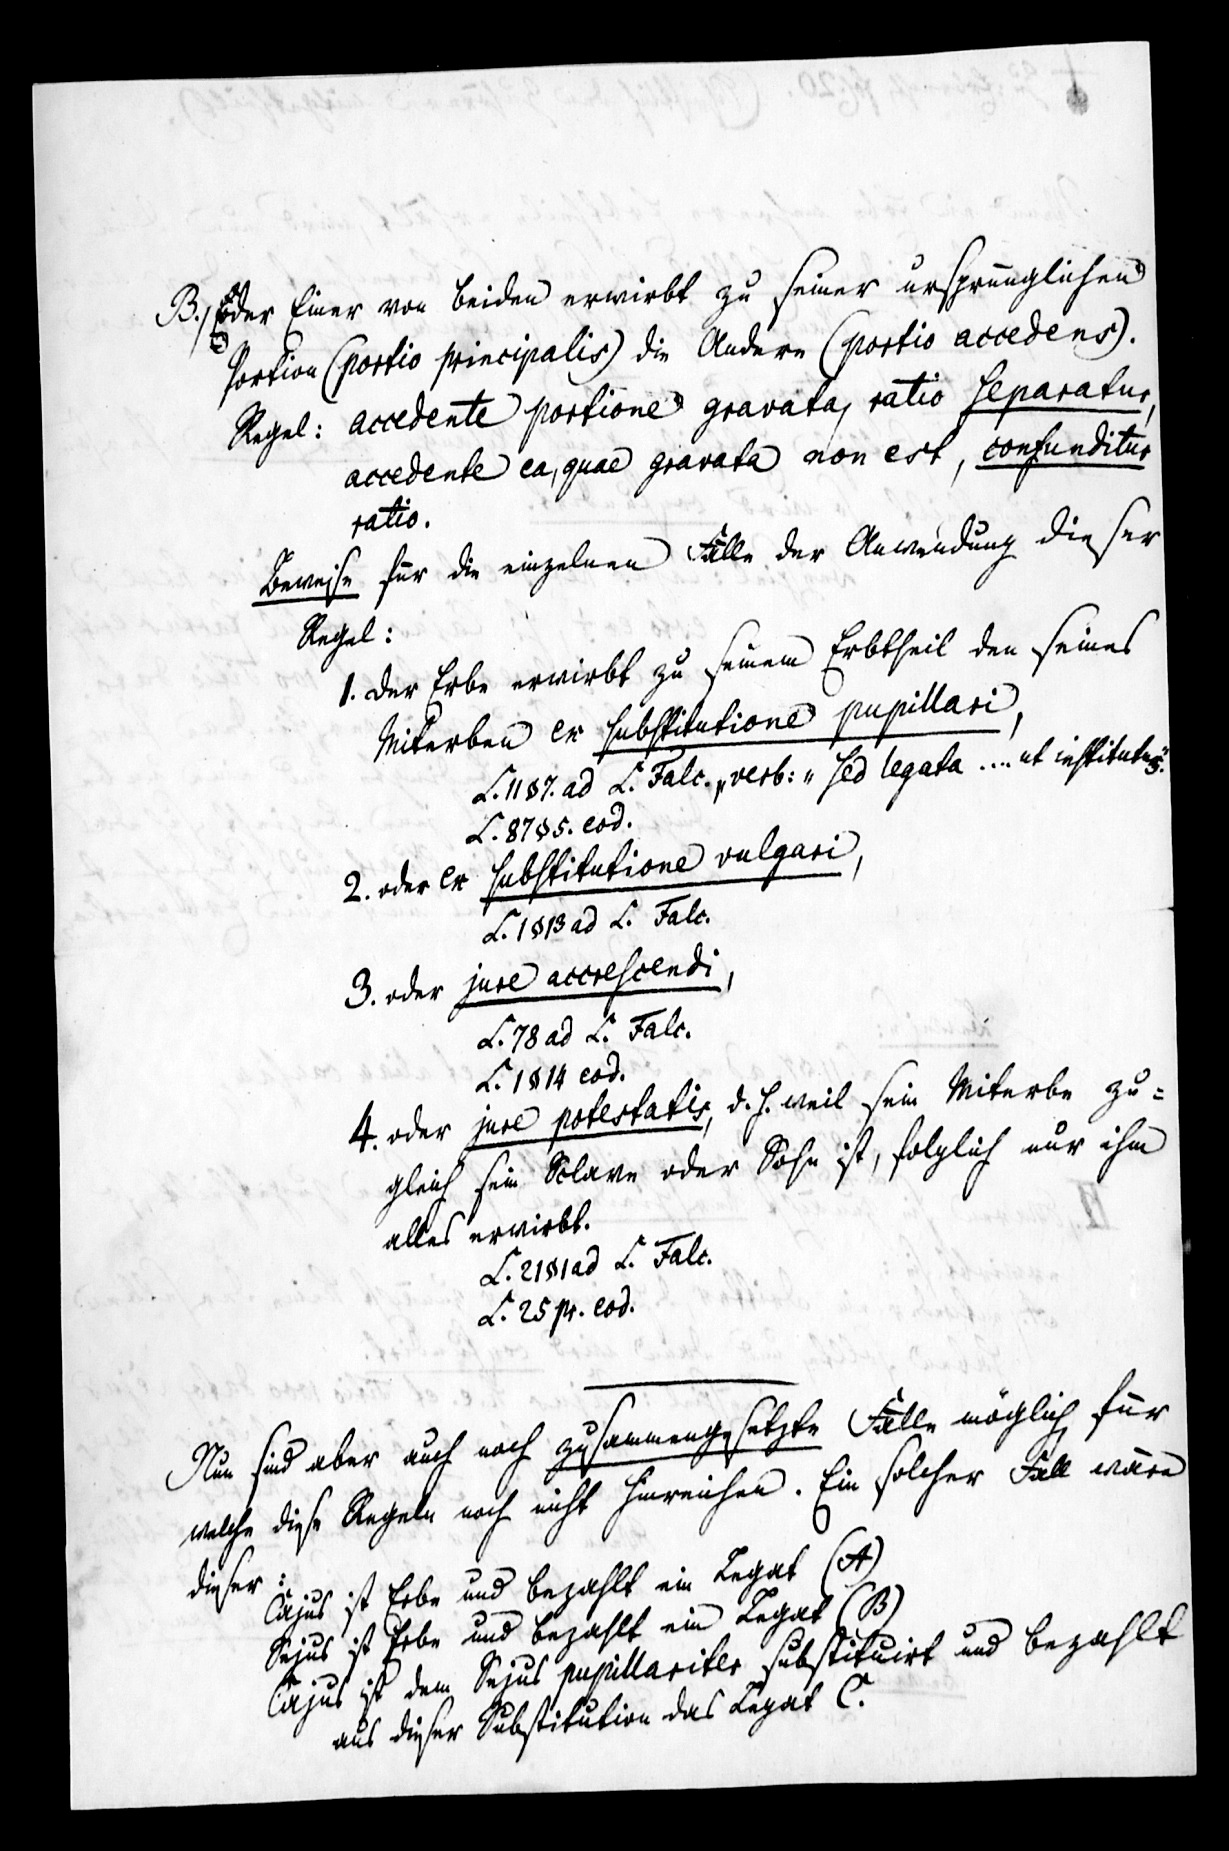 B., Oder Einer von beiden erwirbt zu seiner ursprünglichen
Portion (portio principalis) die Andere (portio accedens).
Regel: accedente portione gravata, ratio separatur,
accedente ea, quae gravata non est, confunditur
ratio.
Beweise für die einzelnen Fälle der Anwendung dieser
Regel:
1. der Erbe erwirbt zu seinem Erbtheil den seines
Miterben ex substitutione pupillari,
L. 11 § 7. ad L. Falc., verb: „sed legata .... ut institutus“.
L. 87 § 5. eod.
2. oder ex substitutione vulgari,
L. 1 § 13 ad L. Falc.
3. oder jure accrescendi,
L. 78 ad L. Falc.
L. 1 § 14 eod.
4. oder jure potestatis, d. h. weil sein Miterbe zu=
gleich sein Sclave oder Sohn ist, folglich nur ihm
alles erwirbt.
L. 21 § 1 ad L. Falc.
L. 25 pr. eod.
Nun sind aber auch noch zusammengesetzte Fälle möglich, für
welche diese Regeln noch nicht hinreichen. Ein solcher Fall wäre
dieser:
Cajus ist Erbe und bezahlt ein Legat (A)
Sejus ist Erbe und bezahlt ein Legat (B)
Cajus ist dem Sejus pupillariter substituirt und bezahlt
aus dieser Substitution das Legat C.